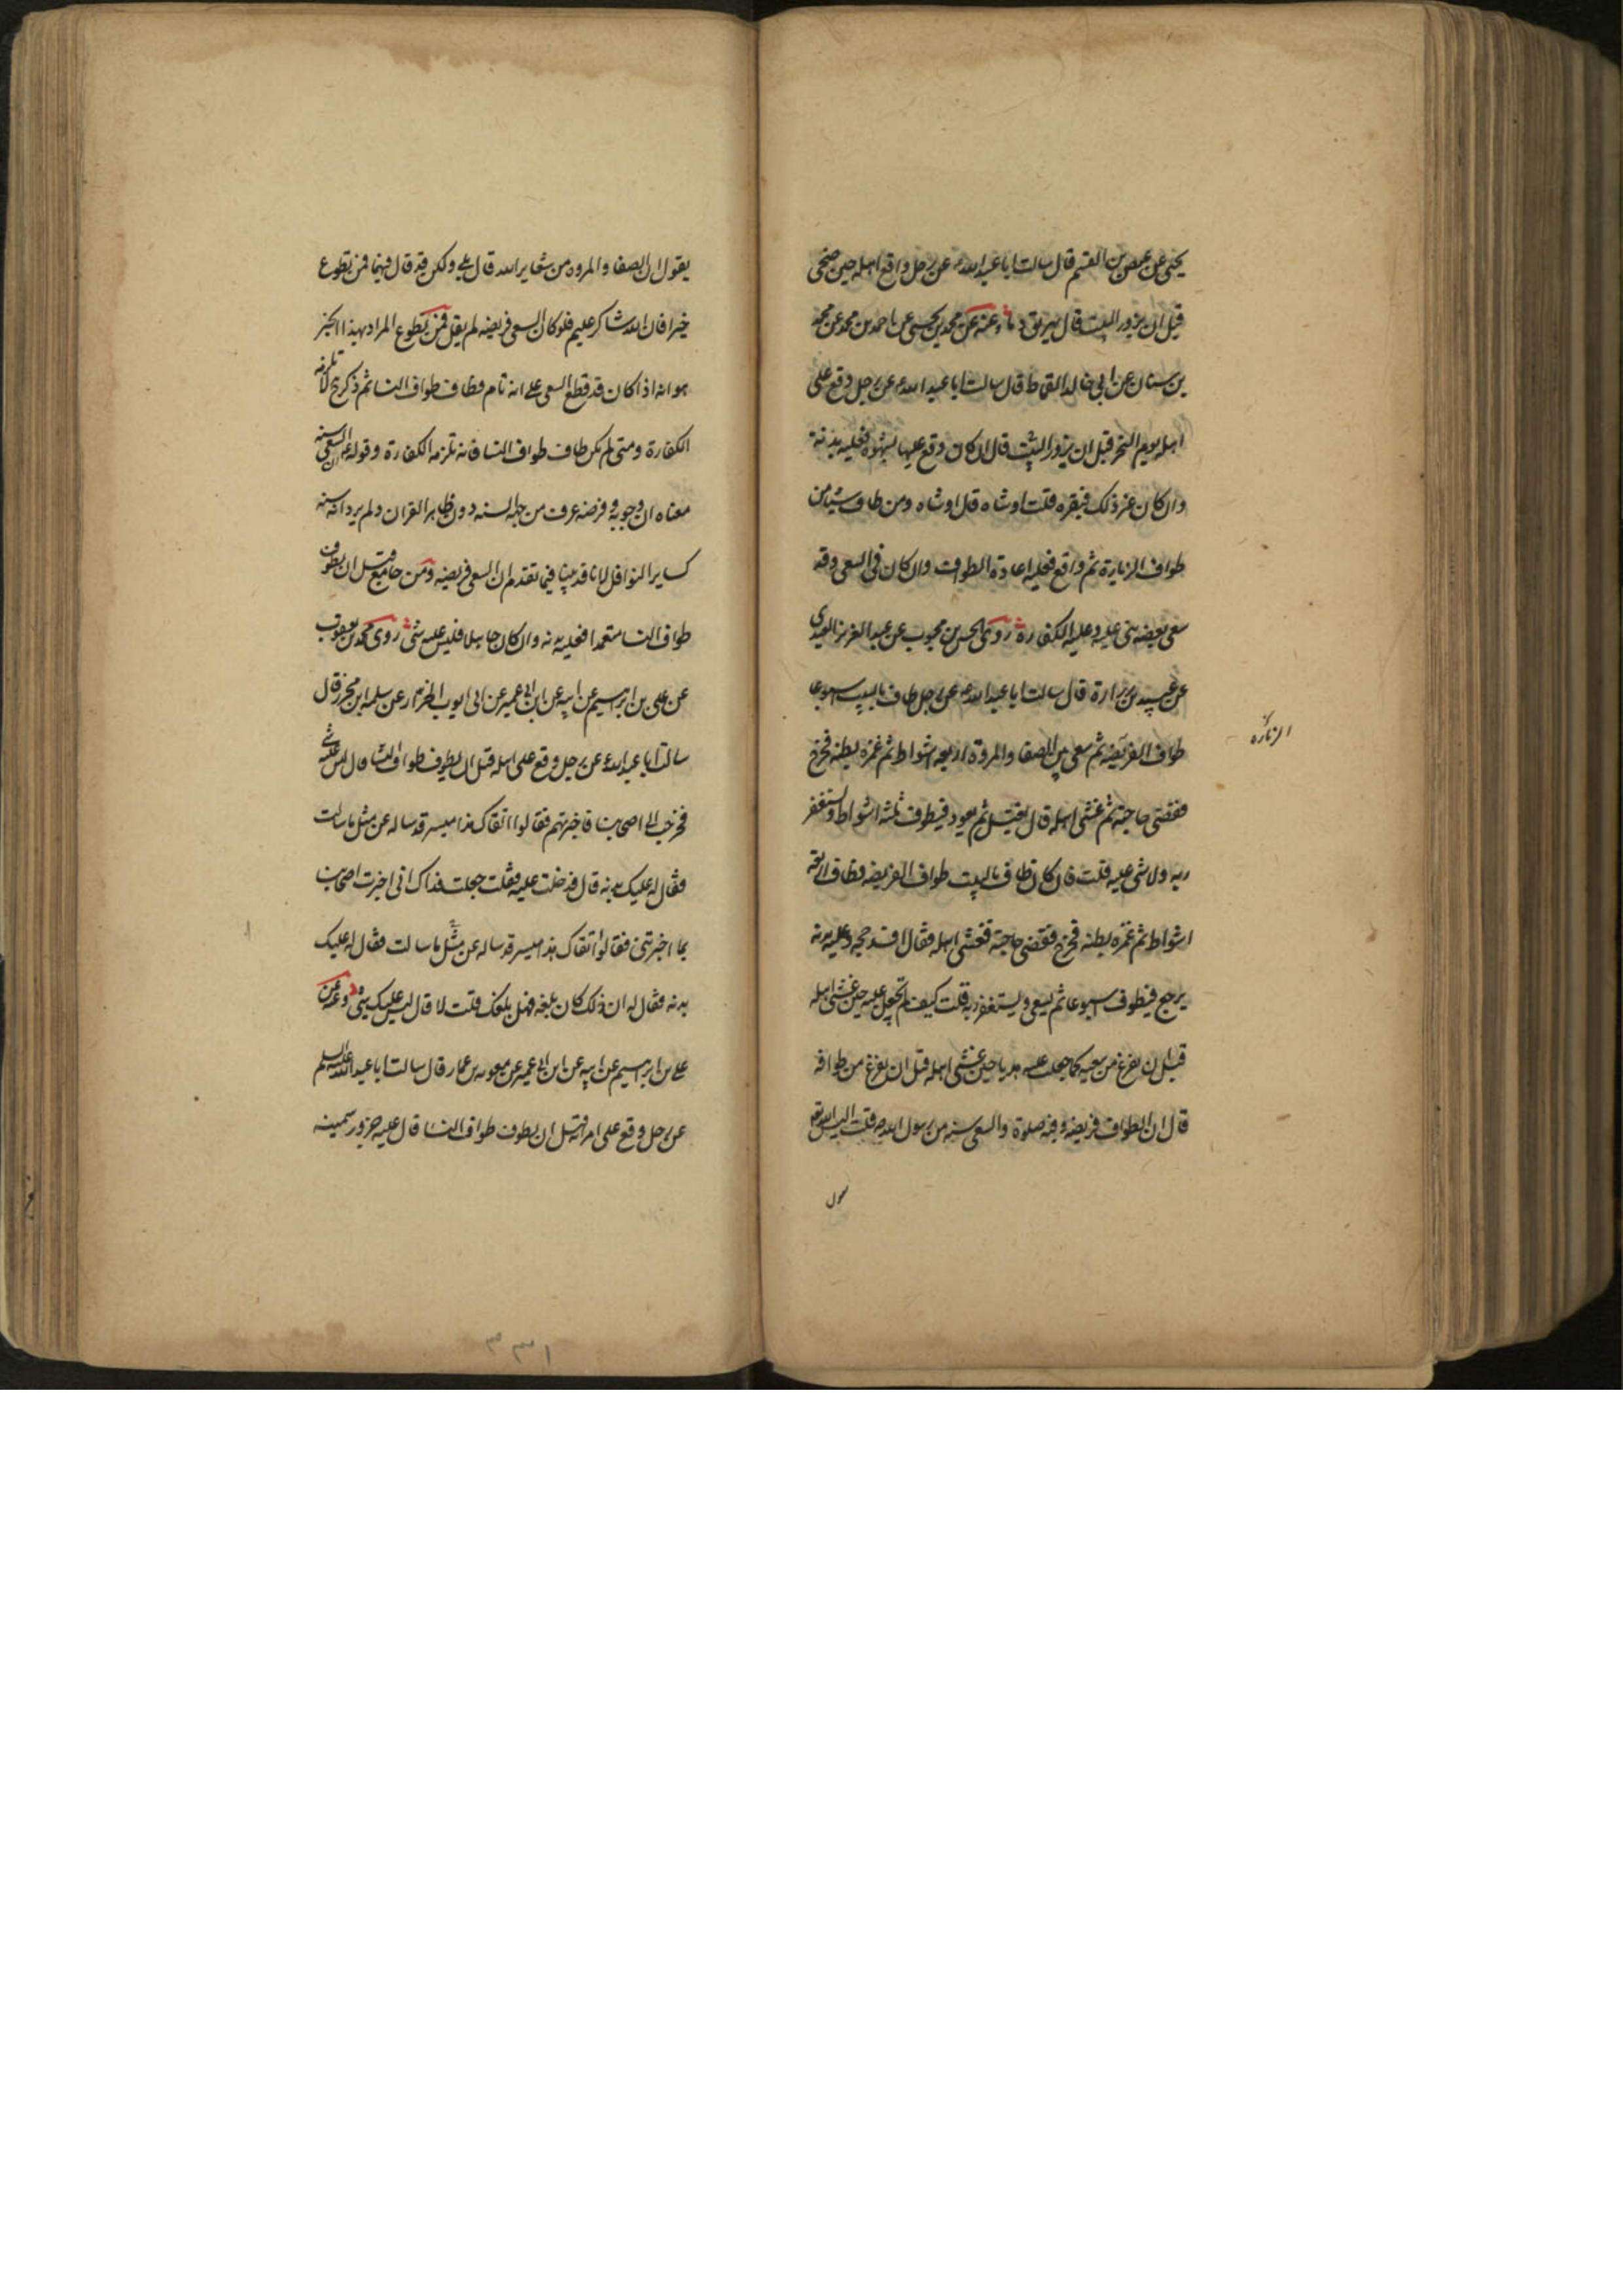 يحيى عن عيص بن القسم قال سالت ابا عبد الله ع عن رجل واقع اهله حين ضحى
قبل ان يزور البيت قال يهريق دما وعنه عن محمد بن يحيى عن احمد بن محمد عن محمد
بن سنان عن ابي خالد القماط قال سالت ابا عبد الله ع عن رجل وقع على
اهله يوم النحر قبل ان يزور البيت قال ان كان وقع عليها بشهوة فعليه بدنة
وان كان غير ذلك فبقره قلت او شاه قال او شاه ومن طاف شيئا من
طواف الزيارة ثم واقع فعليه اعادة الطواف وان كان في السعي وقد
سعى بعضه بنى عليه وعليه الكفارة روى الحسن بن محبوب عن عبد العزيز العبدي
عن عبيد بن زرارة قال سالت ابا عبد الله ع عن رجل طاف بالبيت اسبوعا
طواف الفريضه ثم سعى بين الصفا والمروة اربعه اشواط ثم غمزه بطنه فخرج
فقضى حاجته ثم غشى اهله قال يغتسل ثم يعود فيطوف ثلثه اشواط ويستغفر
ربه ولا شي عليه قلت فان كان طاف بالبيت طواف الفريضه فطاف اربعة
اشواط ثم غمزه بطنه فخرج فقضى حاجته فغشى اهله فقال افسد حجه وعليه بدنه
يرجع فيطوف اسبوعا ثم يسعى ويستغفر ربه قلت كيف لم تجعل عليه حين غشى اهله
قبل ان يفرغ من سعيه كما جعلت عليه هديا حين غشى اهله قبل ان يفرغ من طوافه
قال ان الطواف فريضه وفيه صلوة والسعى سنه من رسول الله ص قلت اليس الله
يقول
الزيارة
يقول ان الصفا والمروه من شعاير الله قال بلى ولكن قد قال فيهما فمن تطوع
خيرا فان الله شاكر عليم فلو كان السعى فريضه لم يقل فمن تطوع المراد بهذا الخبر
هو انه اذا كان قد قطع السعى على انه تام وطاف طواف النسا ثم ذكر لا تلزمه
الكفارة ومتى لم يكن طاف طواف النسا فانه تلزمه الكفارة وقوله ع ان السعى سنه
معناه ان وجوبه وفرضه عرف من جهة السنه دون ظاهر القران ولم يرد انه سنه
كساير النوافل لانا قد بينا فيما تقدم ان السعى فريضه ومن جامع قبل ان يطوف
طواف النسا متعمدا فعليه بدنه وان كان جاهلا فليس عليه شى روى محمد بن يعقوب
عن على بن ابرهيم عن ابيه عن ابن ابي عمير عن ابى ايوب الخزاز عن سلمه ابن محرز قال
سالت ابا عبد الله ع عن رجل وقع على اهله قبل ان يطوف طواف النسا قال ليس عليه شي
فخرجت الى اصحابنا فاخبرتهم فقالوا اتقاك هذا ميسر قد ساله عن مثل ما سالت
فقال له عليك بدنه قال فدخلت عليه فقلت جعلت فداك انى اخبرت اصحابنا
بما اخبرتنى فقالوا اتقاك هذا ميسر قد ساله عن مثل ما سالت فقال له عليك
بدنه فقال له ان ذلك كان بلغه فهل بلغك قلت لا قال ليس عليك شى وعنه عن
على بن ابرهيم عن ابيه عن ابن ابى عمير عن معويه بن عمار قال سالت ابا عبد الله عليه السلم
عن رجل وقع على امراته قبل ان يطوف طواف النسا قال عليه جزور سمينه